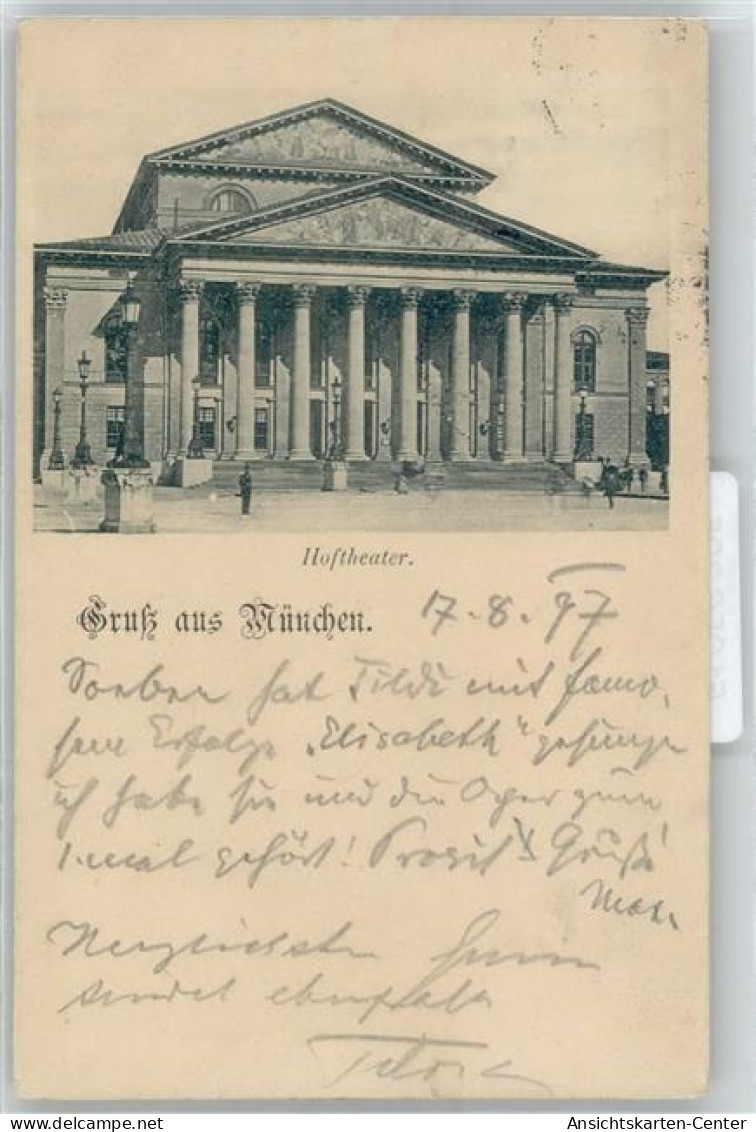 Hoftheater.
Gruß aus München.
17.8.97
Soeben hat Tilde mit famo-
sem Erfolge „Elisabeth“ gesungen
ich habe sie und die Oper zum
1. mal gehört! Prosit! Grüße
Max.
Herzlichsten
sendet ebenfalls
Ansichtskarten-Center